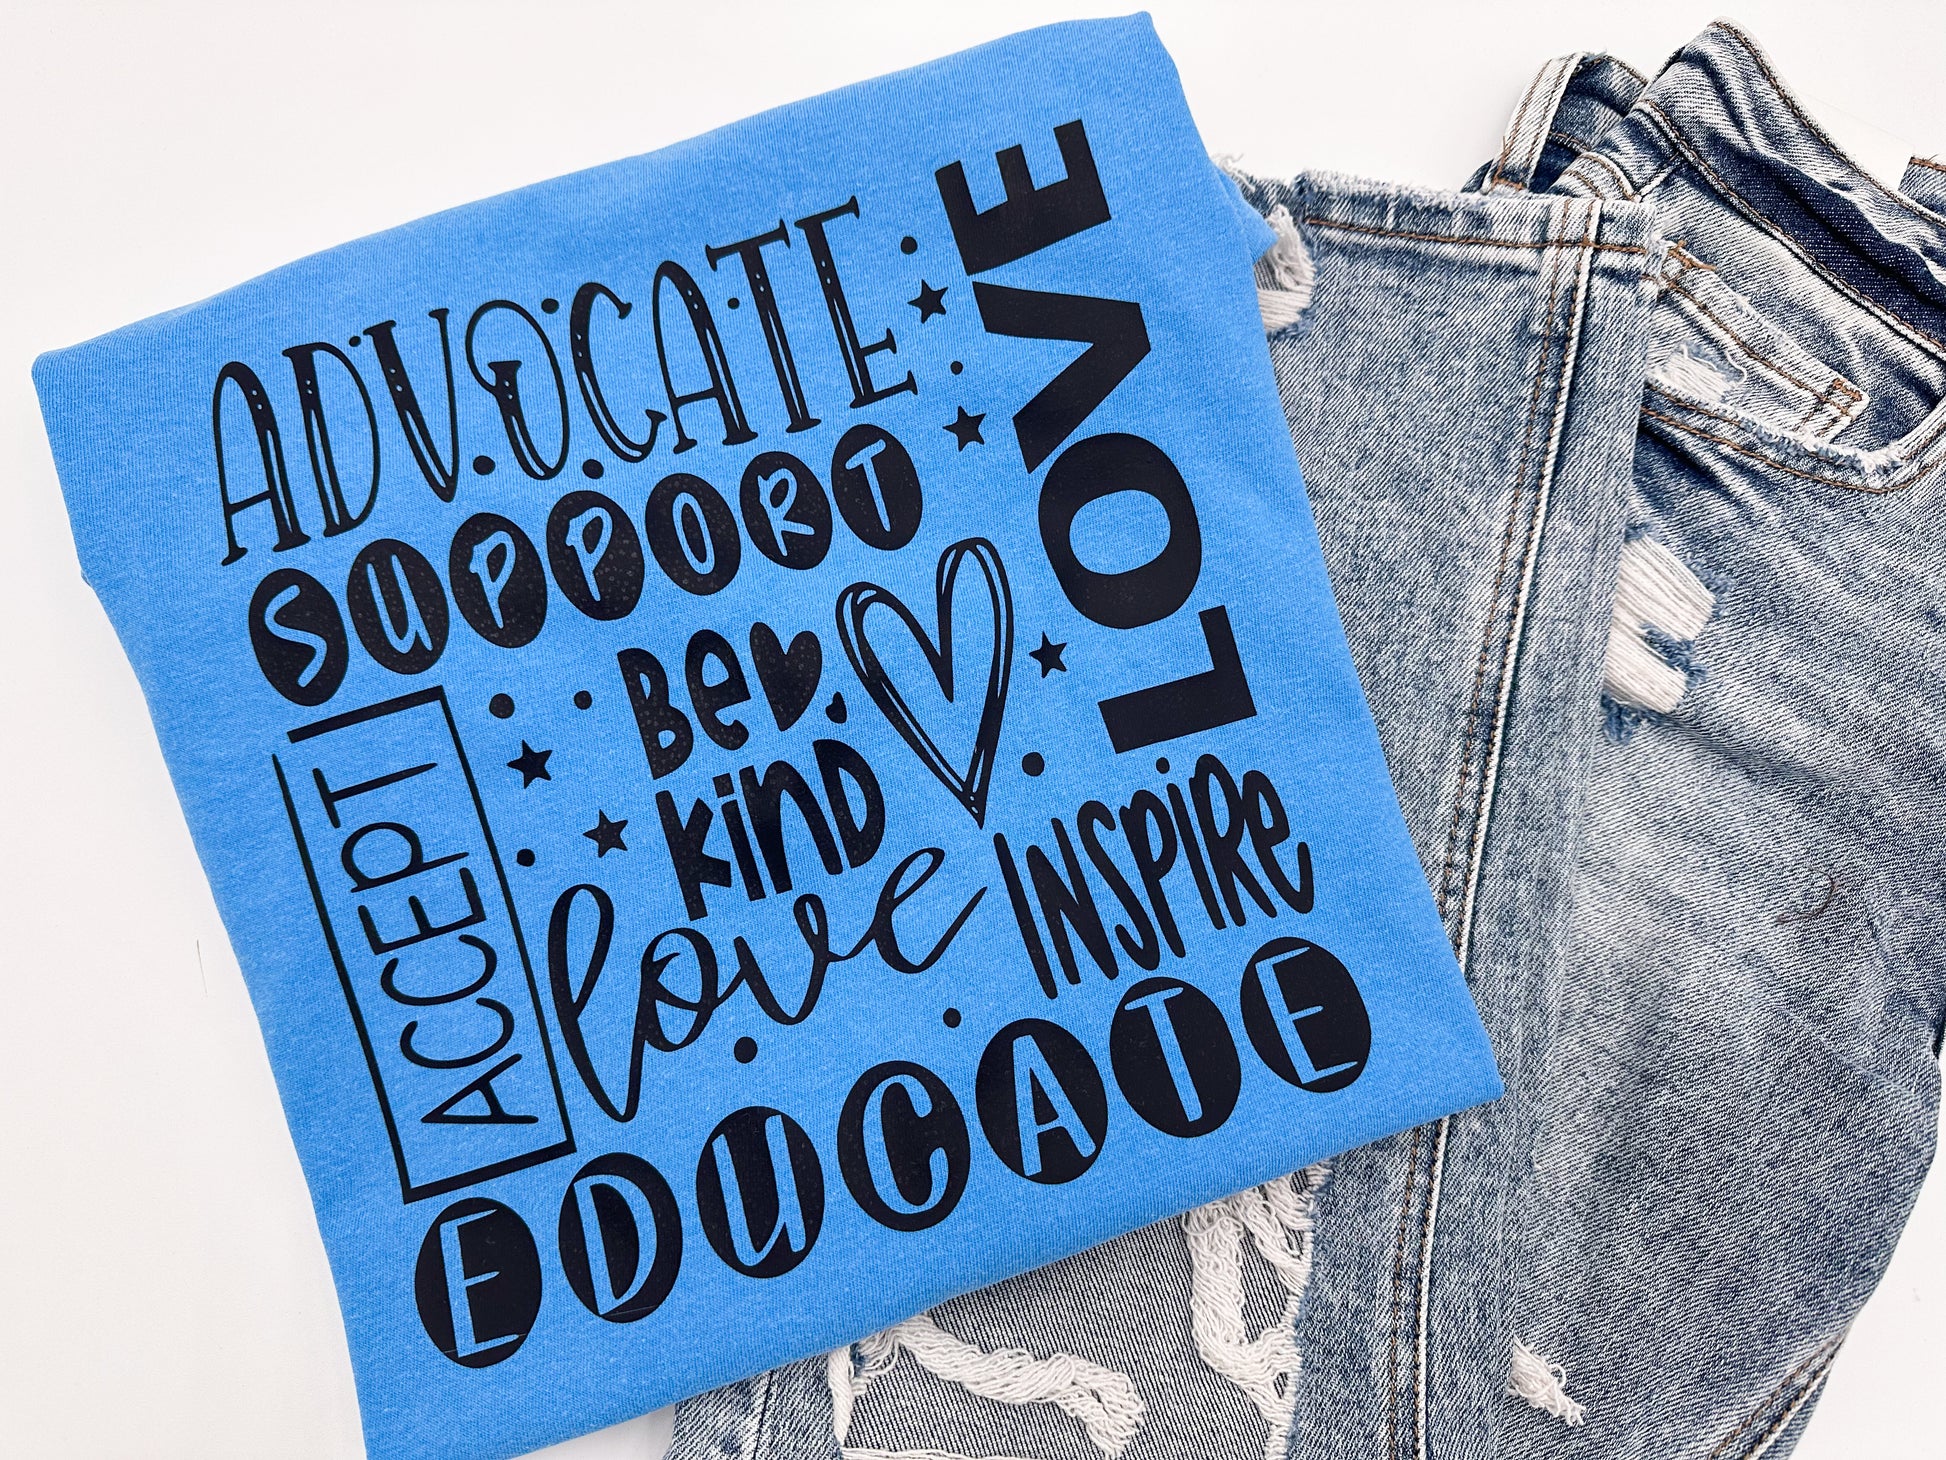 ADVOCATE
SUPPORT
LOVE
ACCEPT
BE
KIND
love
INSPIRE
EDUCATE